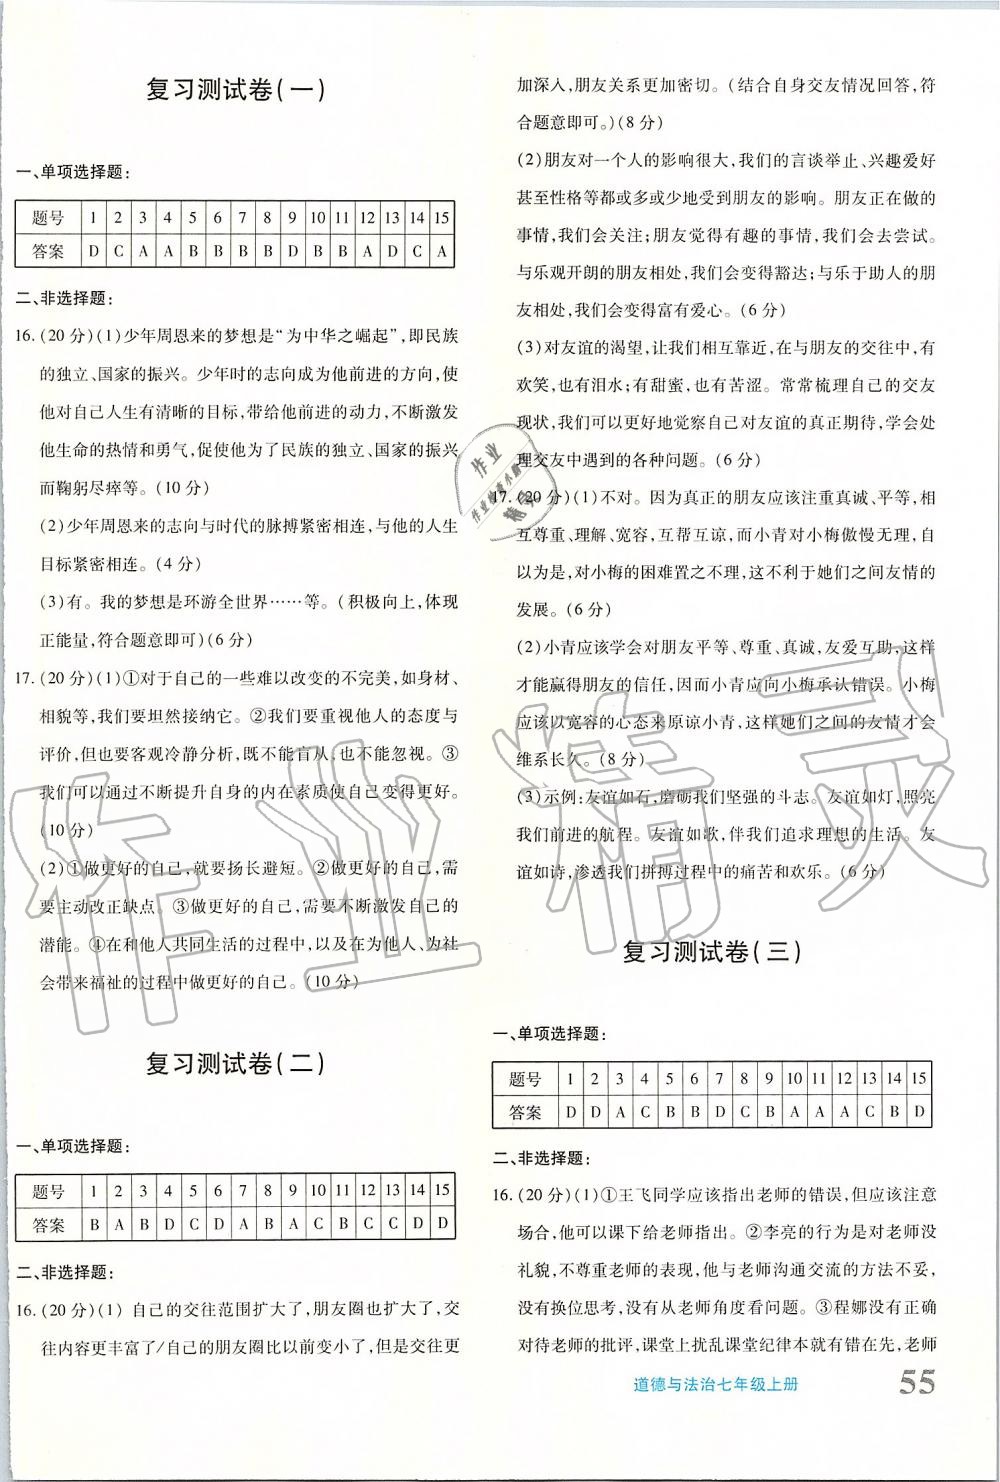 复习测试卷(一)
一、单项选择题:
题号 1 2 3 4 5 6 7 8 9 10 11 12 13 14 15
答案 D C A A B B B B D B B A D C A
二、非选择题:
16.(20分)(1)少年周恩来的梦想是“为中华之崛起”,即民族
的独立、国家的振兴。少年时的志向成为他前进的方向,使
他对自己人生有清晰的目标,带给他前进的动力,不断激发
他生命的热情和勇气,促使他为了民族的独立、国家的振兴
而鞠躬尽瘁等。(10分)
(2)少年周恩来的志向与时代的脉搏紧密相连,与他的人生
目标紧密相连。(4分)
(3)有。我的梦想是环游全世界……等。(积极向上,体现
正能量,符合题意即可)(6分)
17.(20分)(1)①对于自己的一些难以改变的不完美,如身材、
相貌等,我们要坦然接纳它。②我们要重视他人的态度与
评价,但也要客观冷静分析,既不能盲从,也不能忽视。③
我们可以通过不断提升自身的内在素质使自己变得更好。
(10分)
(2)①做更好的自己,就要扬长避短。②做更好的自己,需
要主动改正缺点。③做更好的自己,需要不断激发自己的
潜能。④在和他人共同生活的过程中,以及在为他人、为社
会带来福祉的过程中做更好的自己。(10分)
复习测试卷(二)
一、单项选择题:
题号 1 2 3 4 5 6 7 8 9 10 11 12 13 14 15
答案 B A B D C D A B B C B C C D D
二、非选择题:
16.(20分)(1) 自己的交往范围扩大了,朋友圈也扩大了,交
往内容更丰富了/自己的朋友圈比以前变小了,但是交往更
加深入,朋友关系更加密切。(结合自身交友情况回答,符
合题意即可。)(8分)
(2)朋友对一个人的影响很大,我们的言谈举止、兴趣爱好
甚至性格等都或多或少地受到朋友的影响。朋友正在做的
事情,我们会关注;朋友觉得有趣的事情,我们会去尝试。
与乐观开朗的朋友相处,我们会变得豁达;与乐于助人的朋
友相处,我们会变得富有爱心。(6分)
(3)对友谊的渴望,让我们相互靠近,在与朋友的交往中,有
欢笑,也有泪水;有甜蜜,也有苦涩。常常梳理自己的交友
现状,我们可以更好地觉察自己对友谊的真正期待,学会处
理交友中遇到的各种问题。(6分)
17.(20分)(1)不对。因为真正的朋友应该注重真诚、平等,相
互尊重、理解、宽容,互帮互谅,而小青对小梅傲慢无理、自
以为是,对小梅的困难置之不理,这不利于她们之间友情的
发展。(6分)
(2)小青应该学会对朋友平等、尊重、真诚,友爱互助,这样
才能赢得朋友的信任,因而小青应向小梅承认错误。小梅
应该以宽容的心态来原谅小青,这样她们之间的友情才会
维系长久。(8分)
(3)示例:友谊如石,磨砺我们坚强的斗志。友谊如灯,照亮
我们前进的航程。友谊如歌,伴我们追求理想的生活。友
谊如诗,渗透我们拼搏过程中的痛苦和欢乐。(6分)
复习测试卷(三)
一、单项选择题:
题号 1 2 3 4 5 6 7 8 9 10 11 12 13 14 15
答案 D D A C B B D C B A A A C B D
二、非选择题:
16.(20分)(1)①王飞同学应该指出老师的错误,但应该注意
场合,他可以课下给老师指出。②李亮的行为是对老师没
礼貌,不尊重老师的表现,他与老师沟通交流的方法不妥,
没有换位思考,没有从老师角度看问题。③程娜没有正确
对待老师的批评,课堂上扰乱课堂纪律本就有错在先,老师
道德与法治七年级上册 55
作业精灵